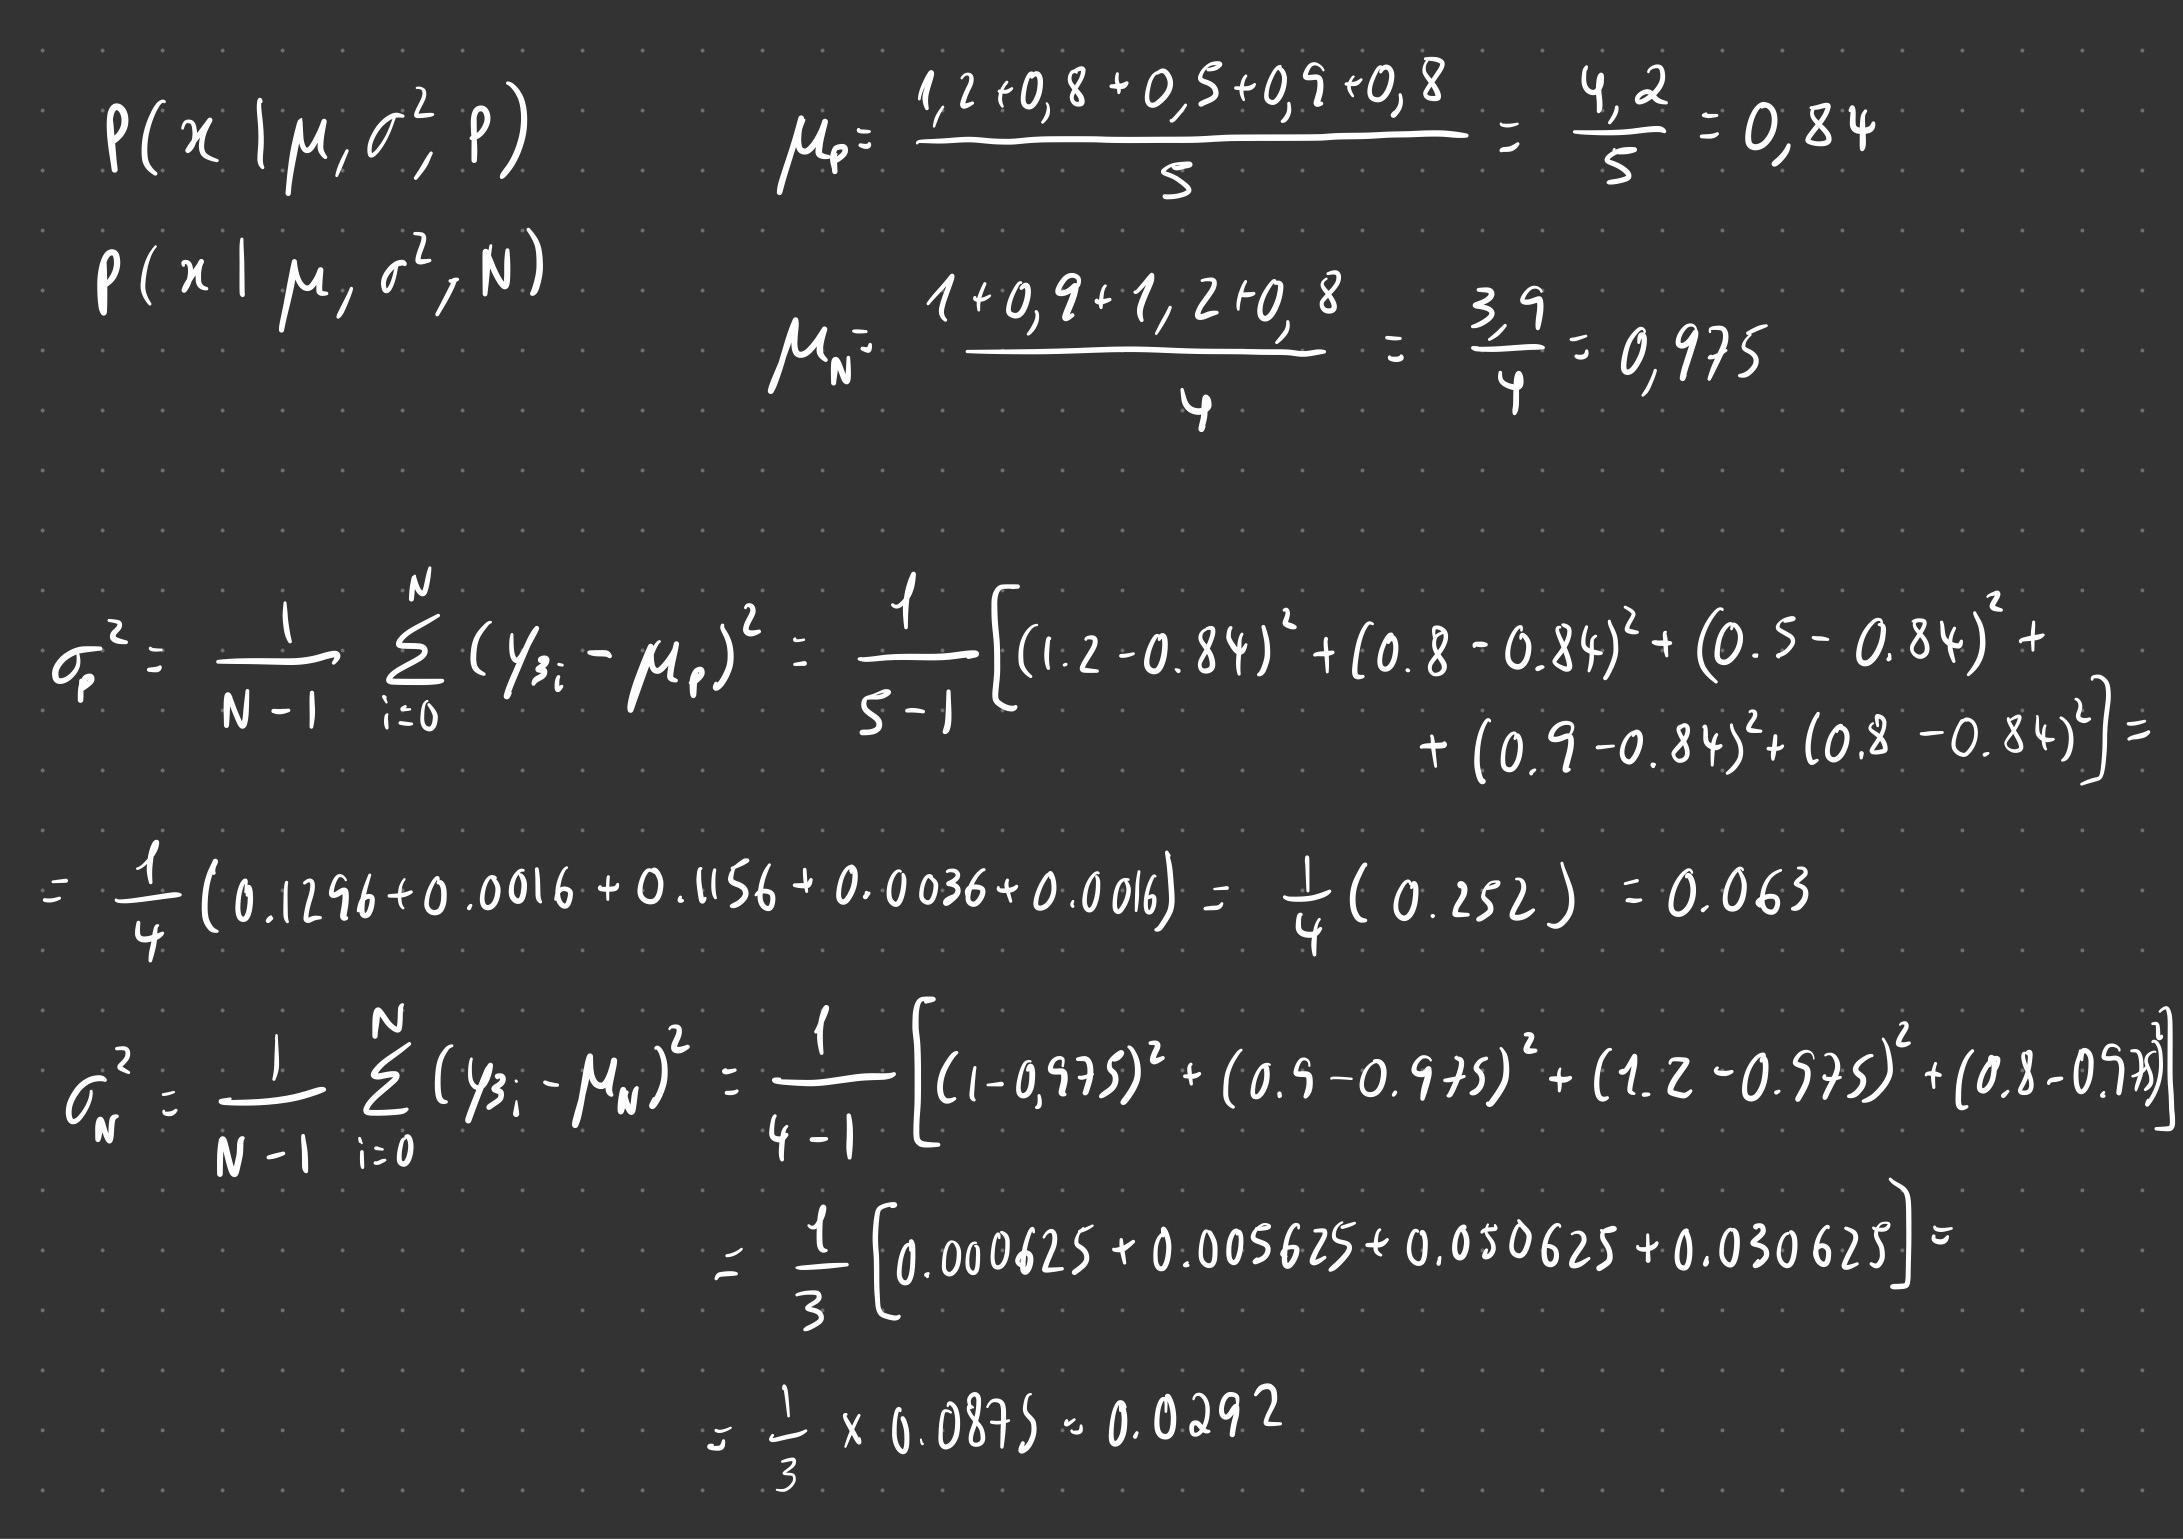 P(x | μ, σ², P)
μ_P = (1,2 + 0,8 + 0,5 + 0,9 + 0,8) / 5 = 4,2 / 5 = 0,84
P(x | μ, σ², N)
μ_N = (1 + 0,9 + 1,2 + 0,8) / 4 = 3,9 / 4 = 0,975
σ_P² = 1/(N-1) Σ_{i=0}^{N} (y_{3i} - μ_P)² = 1/(5-1) [(1.2 - 0.84)² + (0.8 - 0.84)² + (0.5 - 0.84)² +
+ (0.9 - 0.84)² + (0.8 - 0.84)²] =
= 1/4 (0.1296 + 0.0016 + 0.1156 + 0.0036 + 0.0016) = 1/4 (0.252) = 0.063
σ_N² = 1/(N-1) Σ_{i=0}^{N} (y_{3i} - μ_N)² = 1/(4-1) [(1 - 0,975)² + (0.9 - 0.975)² + (1.2 - 0.975)² + (0.8 - 0.975)²]
= 1/3 [0.000625 + 0.005625 + 0.050625 + 0.030625] =
= 1/3 × 0.0875 = 0.0292